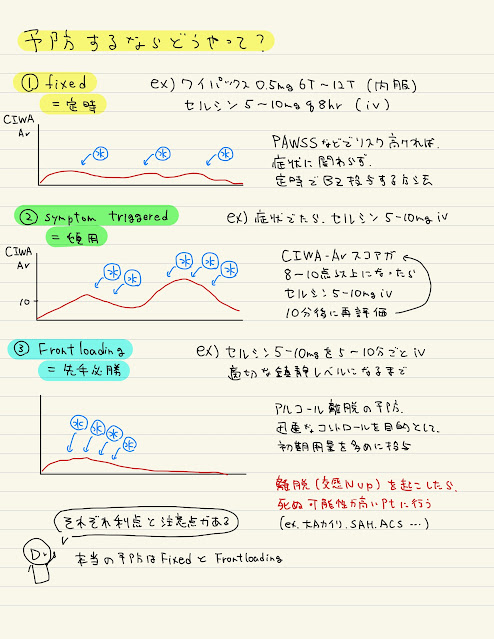 予防するならどうやって?
① fixed
= 定時
ex) ワイパックス 0.5mg 6T〜12T (内服)
セルシン 5〜10mg q8hr (iv)
CIWA
Ar
水 水 水
PAWSSなどでリスク高ければ、
症状に関わらず、
定時でBZ投与する方法
② symptom triggered
= 頓用
ex) 症状でたら、セルシン 5-10mg iv
CIWA
Ar
10
水 水 水 水 水
CIWA-Arスコアが
8〜10点以上になったら
セルシン 5-10mg iv
10分後に再評価
③ Frontloading
= 先手必勝
ex) セルシン 5-10mgを 5〜10分ごと iv
適切な鎮静レベルになるまで
水 水 水 水
アルコール離脱の予防、
迅速なコントロールを目的として、
初期用量を多めに投与
離脱 (交感N up) を起こしたら、
死ぬ可能性が高いPtに行う
(ex. 大Aカイリ、SAH、ACS …)
それぞれ利点と注意点がある
Dr
本当の予防は Fixed と Frontloading